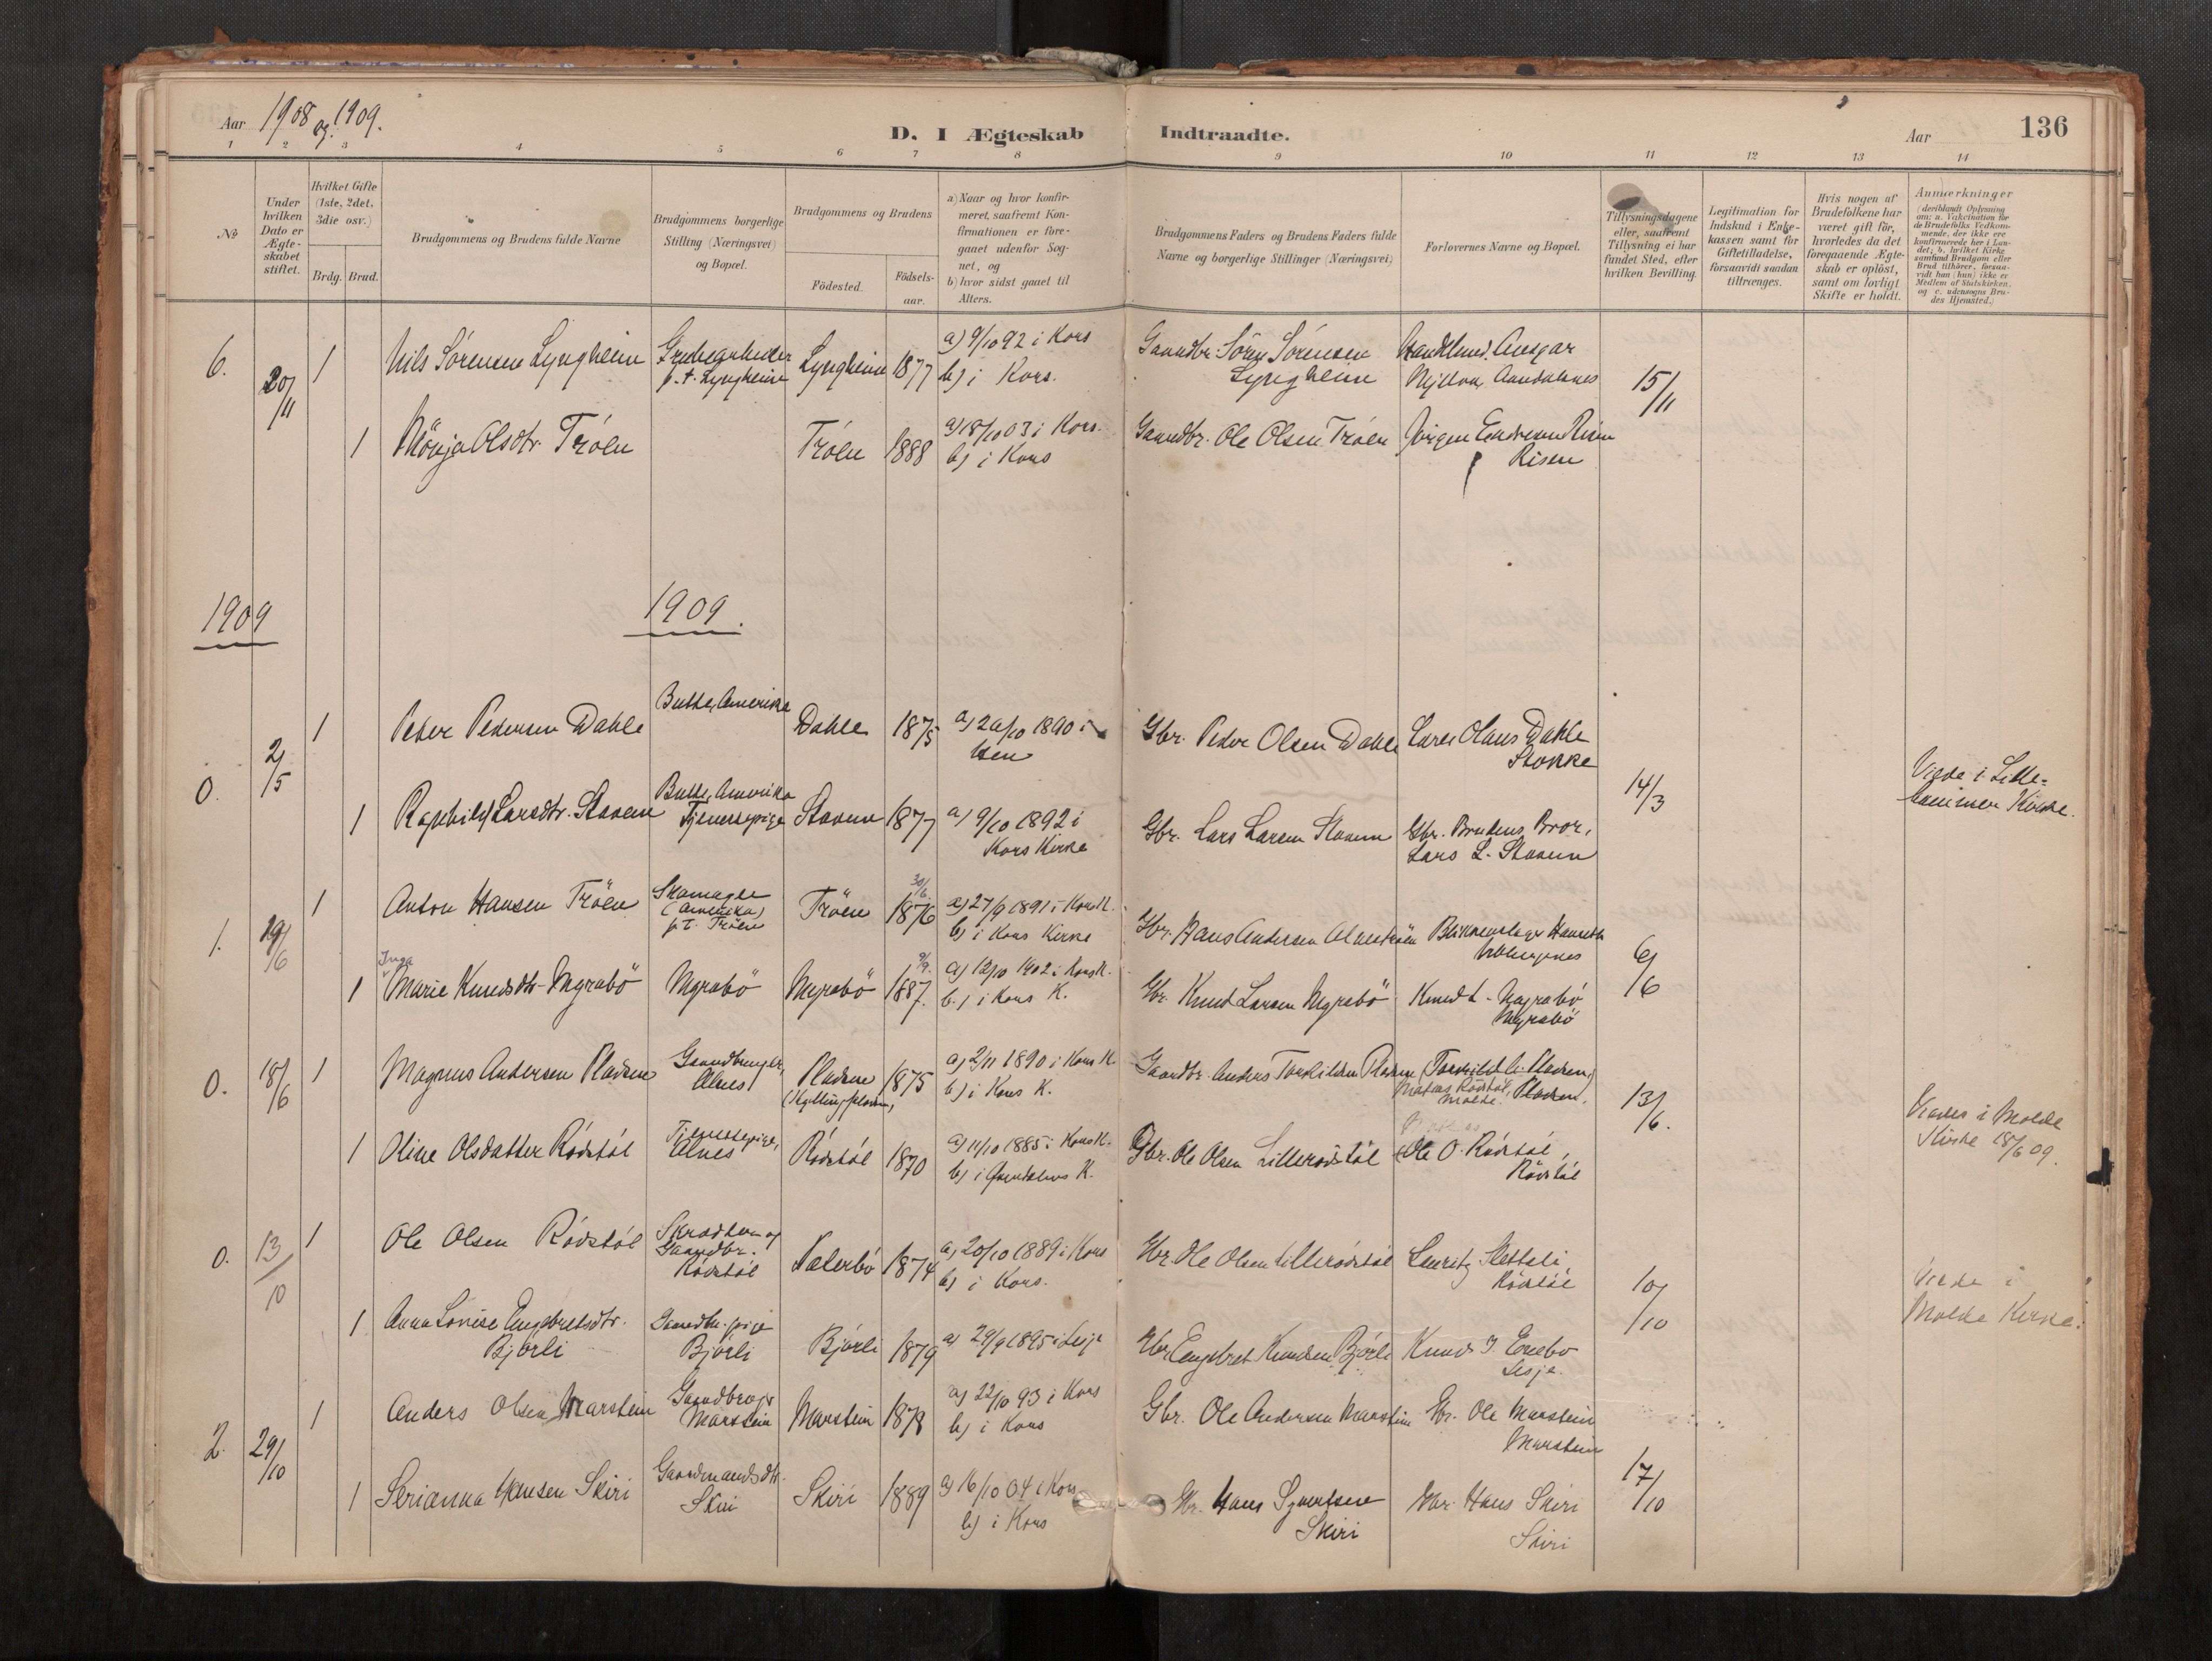 Aar 1908 og 1909.
D. I Ægteskab Indtraadte.
Aar 136
1 2 3 4 5 6 7 8 9 10 11 12 13 14
No
Under hvilken Dato er Ægteskabet stiftet.
Hvilket Gifte (1ste, 2det, 3die osv.)
Brdg. Brud.
Brudgommens og Brudens fulde Navne
Brudgommens borgerlige Stilling (Næringsvei) og Bopæl.
Brudgommens og Brudens
Födested. Födsels-aar.
a) Naar og hvor konfir-
meret, saafremt Kon-
firmationen er fore-
gaaet udenfor Sog-
net, og
b) hvor sidst gaaet til
Alters.
Brudgommens Faders og Brudens Faders fulde
Navne og borgerlige Stillinger (Næringsvei)
Forlovernes Navne og Bopæl.
Tillysningsdagene
eller, saafremt
Tillysning ei har
fundet Sted, efter
hvilken Bevilling.
Legitimation for
Indskud i Enke-
kassen samt for
Giftetilladelse,
forsaavidt saadan
tiltrænges.
Hvis nogen af
Brudefolkene har
været gift för,
hvorledes da det
foregaaende Ægte-
skab er oplöst,
samt om lovligt
Skifte er holdt.
Anmærkninger
(deriblandt Oplysning
om: a. Vakcination for
de Brudefolks Vedkom-
mende, der ikke ere
konfirmerede her i Lan-
det; b. hvilket Kirke-
samfund Brudgom eller
Brud tilhörer, forsaa-
vidt han (hun) ikke er
Medlem af Statskirken,
og c. udensogns Bru-
des Hjemsted.)
6. 20/11 1 Nils Sörensen Lyngheim
p. t. Lyngheim
Lyngheim 1877
a) 9/10 92 i Kors
b) i Kors.
Gaardbr. Sören Sörensen
Lyngheim
Aandalsnes
15/11
1 Olsdtr. Tröen
Tröen 1888
a) 18/10 03 i Kors.
b) i Kors
Gaardbr. Ole Olsen Tröen
Jörgen Endresen Risen
Risen
1909
1909.
0. 2/5 1 Peder Pedersen Dahle
Butte, Amerika
Dahle 1875
1890 i
Gbr. Peder Olsen Dahle
Lars Olaus Dahle
Stokke
14/3
Viede i Lille-
hammer Kirke.
1 Ragnhild Larsdtr. Stavem
Butte, Amerika
Tjenestepige
Stavem 1877
a) 9/10 1892 i
Kors Kirke
Gbr. Lars Larsen Stavem
Gbr. Brudens Bror,
Lars L. Stavem
1. 19/6 1 Anton Hansen Tröen
(Amerika)
p. t. Tröen
Tröen 30/6 1876
a) 27/9 1891 i Kors K.
b) i Kors Kirke
Gbr. Hans Andersen Alneströen
6/6
1 Inga
Marie Knudsdtr. Myrabö
Myrabö
Myrabö 9/9. 1887.
a) 12/10 1902 i Kors K.
b.) i Kors K.
Gbr. Knud Larsen Myrabö
Knud L. Myrabö
Myrabö
0. 18/6 1 Magnus Andersen Pladsen
Gaardbruger,
Alnes
Pladsen
1875
a) 2/11 1890 i Kors K.
b) i Kors K.
Gaardbr. Anders Torkildsen Pladsen
Torkild A. Pladsen,
Mathias Rödstöl, Pladsen.
Molde.
13/6.
Viedes i Molde
Kirke 18/6 09.
1 Oline Olsdatter Rödstöl
Tjenestepige,
Alnes
Rödstöl 1870
a) 11/10 1885 i Kors K.
K.
Gbr. Ole Olsen Lillerödstöl
Ole O. Rödstöl,
Rödstöl
0. 13/10 1 Ole Olsen Rödstöl
Skrædder og
Gaardbr.
Rödstöl
1874
a) 20/10 1889 i Kors
b) i Kors.
Gbr. Ole Olsen Lillerödstöl
Lauritz Slettali
Rödstöl
10/10
Viede i
Molde Kirke.
1 Anna Lovise Engebretsdtr.
Björli
Björli
Björli 1879
a) 29/9 1895 i Lesje
Gbr. Engebret Knudsen Björli
Knud I. Enebo
Lesje.
2. 29/10 1 Anders Olsen Marstein
Gaardbruger
Marstein
Marstein 1878
a) 22/10 93 i Kors
b) i Kors
Gbr. Ole Andersen Marstein
Gbr. Ole Marstein
Marstein
17/10
1 Serianna Hansen Skiri
Gaardmandsdtr.
Skiri
Skiri 1889
a) 16/10 04 i Kors
b) i Kors
Gbr. Hans Syvertsen
Skiri
Gbr. Hans Skiri
Skiri